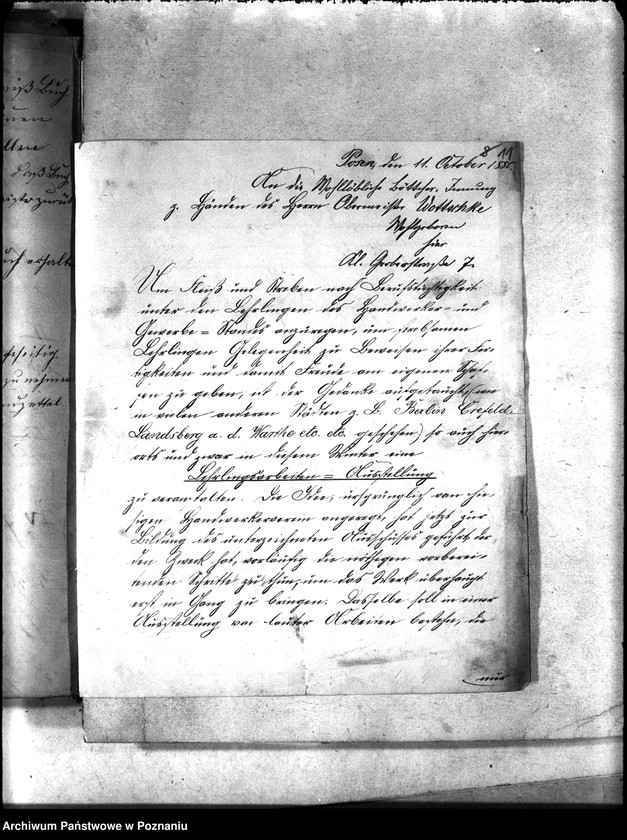 8 11
Posen, den 11. October 188
An die Wohllöbliche Böttcher-Innung
z. Händen des Herrn Obermeister Wottschke
Wohlgeboren
hier
Kl. Gerberstraße 7.
Um Fleiß und Streben nach Berufstüchtigkeit
unter den Lehrlingen des Handwerker- und
Gewerbe=Standes anzuregen, um strebsamen
Lehrlingen Gelegenheit zu Beweisen ihrer Fer-
tigkeiten und damit Freude am eigenen Schaf-
fen zu geben, ist der Gedanke aufgetaucht (wie
in vielen anderen Städten z. B. Berlin Crefeld,
Landsberg a. d. Warthe etc. etc. geschehen) so auch hier-
orts und zwar in diesem Winter eine
Lehrlingsarbeiten=Ausstellung
zu veranstalten. Die Idee, ursprünglich vom hie-
sigen Handwerkerverein angeregt, hat jetzt zur
Bildung des unterzeichneten Ausschusses geführt, der
den Zweck hat, vorläufig die nöthigen vorberei-
tenden Schritte zu thun, um das Werk überhaupt
erst in Gang zu bringen. Dasselbe soll in einer
Ausstellung von lauter Arbeiten bestehn, die
nur
Buch
Buch
erhalte
zu nehmen
Archiwum Państwowe w Poznaniu